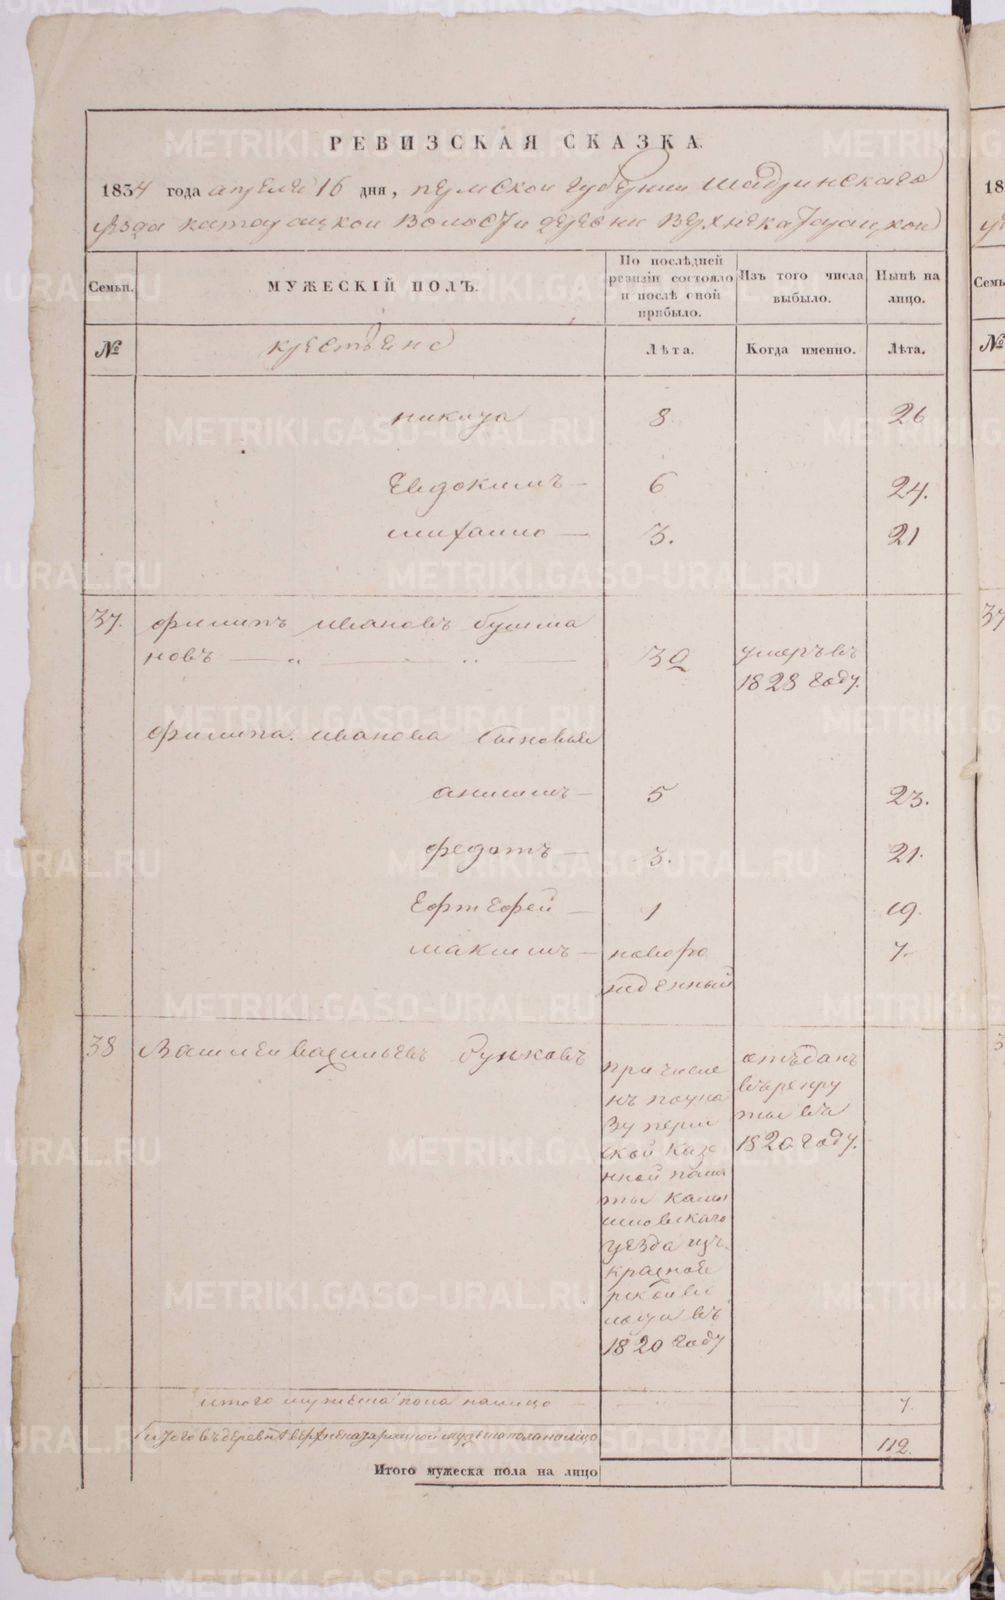 РЕВИЗСКАЯ СКАЗКА.
1834 года апреля 16 дня, пермской губернии Шадринскаго
уезда катайской Волости деревни Верхнекатайской
Семьи.
МУЖЕСКІЙ ПОЛЪ.
По послѣдней ревизіи состояло и послѣ оной прибыло.
Изъ того числа выбыло.
Нынѣ на лицо.
№
крестьяне
Лѣта.
Когда именно.
Лѣта.
8. 26
Евдокимъ 6 24.
михаило 3. 21
37. филипъ ивановъ бушма
новъ 32 умеръ въ
1828 году.
филипа иванова сыновья
анисимъ 5 23.
федотъ 3. 21.
Ефтефей 1 19.
максимъ новоро 7.
жденный
38 Василеи васильевъ
причисле
нъ поука
зу перм
ской казе
нной пала
ты камы
шловскаго
уезда изъ
красной
въ
1820 году
отъданъ
въ рекру
ты въ
1820 году.
итого мужеска пола налицо 7.
112.
Итого мужеска пола на лицо
METRIKI.GASO-URAL.RU